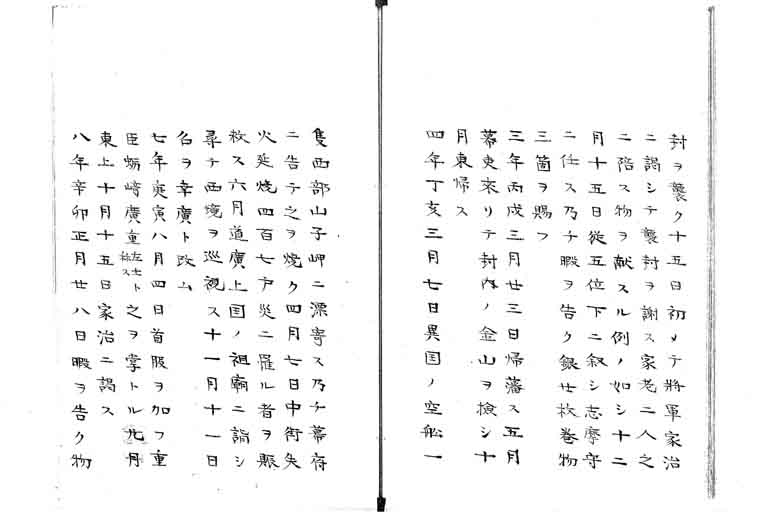 封ヲ襲ク十五日初メテ將軍家治
ニ謁シテ襲封ヲ謝ス家老二人之
ニ陪ス物ヲ献スル例ノ如シ十二
月十五日從五位下ニ叙シ志摩守
ニ任ス乃チ暇ヲ告ク銀廿枚巻物
三箇ヲ賜フ
三年丙戌三月廿三日帰藩ス五月
幕吏來リテ封内ノ金山ヲ検シ十
月東帰ス
四年丁亥三月七日異国ノ空船一
隻西部山子岬ニ漂寄ス乃チ幕府
ニ告テ之ヲ焼ク四月七日中街失
火延焼四百七戸災ニ罹ル者ヲ賑
救ス六月道廣上国ノ祖廟ニ詣シ
尋テ西境ヲ巡視ス十一月十一日
名ヲ幸廣ト改ム
七年庚寅八月四日首服ヲ加フ重
臣蛎崎廣重左士ト称ス之ヲ掌トル九月
東上十月十五日家治ニ謁ス
八年辛卯正月廿八日暇ヲ告ク物